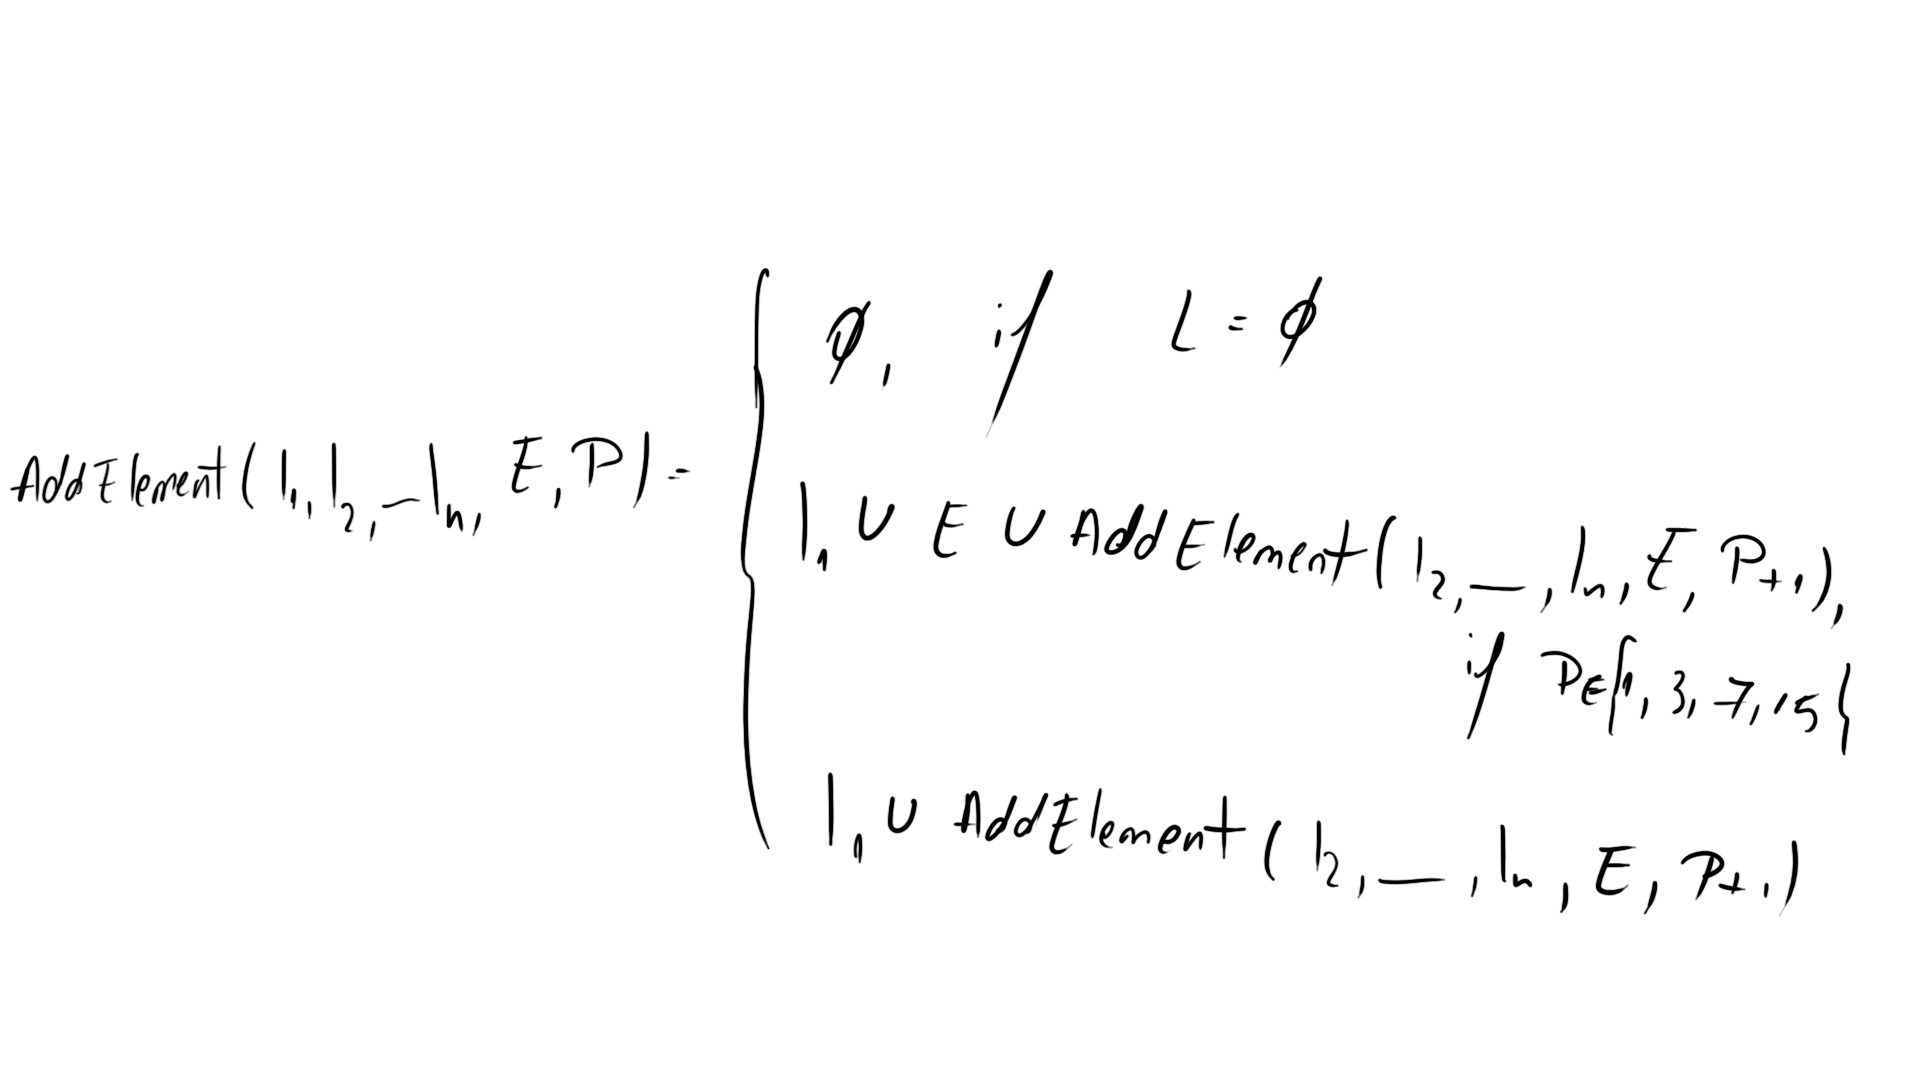 ∅, if L = ∅
AddElement(l₁, l₂, _ lₙ, E, P) =
l₁ ∪ E ∪ AddElement(l₂, _, lₙ, E, P+1),
if P∈{1, 3, 7, 15}
l₁ ∪ AddElement(l₂, _, lₙ, E, P+1)